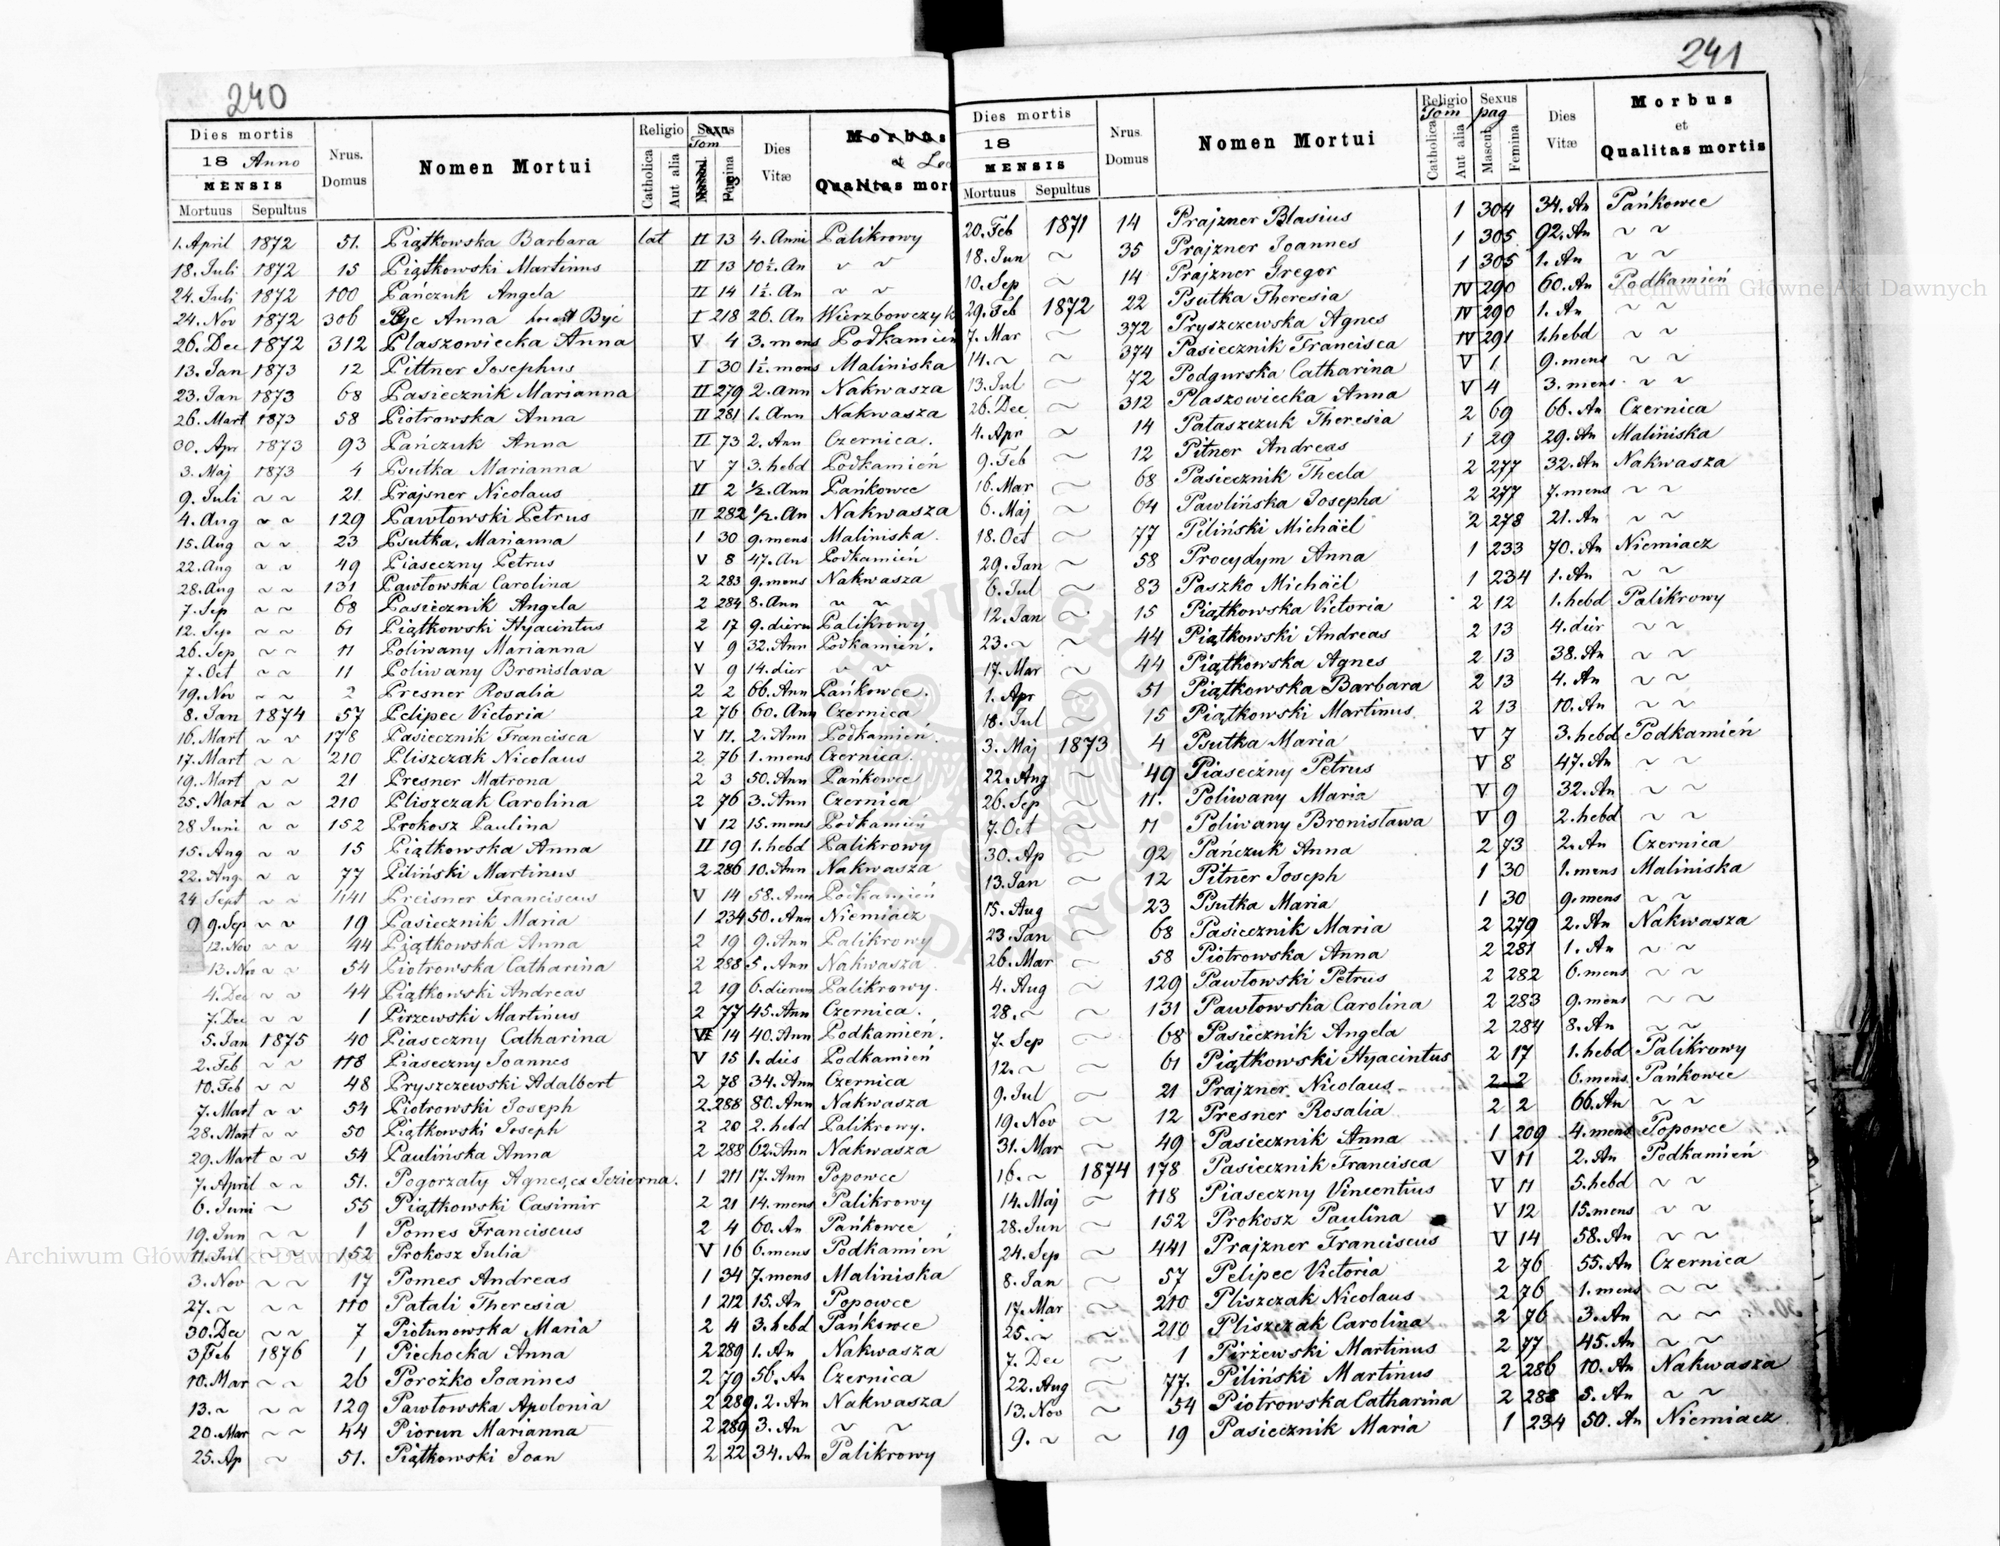 240
Dies mortis
18 Anno
MENSIS
Mortuus Sepultus
Nrus. Domus
Nomen Mortui
Religio
Catholica
Aut alia
Sexus
Tom
Femina
Dies Vitæ
Morbus
et
Qualitas mort
1. April 1872 51. Piątkowska Barbara lat II 13 4. Anni Palikrowy
18. Juli 1872 15 Piątkowski Martinus II 13 10½. An ~ ~
24. Juli 1872 100 Pańczuk Angela II 14 1½. An ~ ~
24. Nov 1872 306 Anna Być I 218 26. An Wierzbowczyk
26. Dec 1872 312 Płaszowiecka Anna V 4 3. mens Podkamień
13. Jan 1873 12 Pittner Josephus I 30 1½. mens Maliniska
23. Jan 1873 68 Pasiecznik Marianna II 279 2. Ann Nakwasza
26. Mart 1873 58 Piotrowska Anna II 281 1. Ann Nakwasza
30. Apr 1873 93 Pańczuk Anna II 73 2. Ann Czernica.
3. Maj 1873 4 Psutka Marianna V 7 3. hebd Podkamień
9. Juli ~ ~ 21 Prajsner Nicolaus II 2 ½. Ann Pańkowce
4. Aug ~ ~ 129 Pawłowski Petrus II 282 ½. An Nakwasza
15. Aug ~ ~ 23 Psutka, Marianna 1 30 9. mens Maliniska.
22. Aug ~ ~ 49 Piaseczny Petrus V 8 47. An Podkamień
28. Aug ~ ~ 131 Pawłowska Carolina 2 283 9. mens Nakwasza
7. Sep ~ ~ 68 Pasiecznik Angela 2 284 8. Ann ~ ~
12. Sep ~ ~ 61 Piątkowski Hyacintus 2 17 9. dieru Palikrowy
26. Sep ~ ~ 11 Poliwany Marianna V 9 32. Ann Podkamień.
7. Oct ~ ~ 11 Poliwany Bronislava V 9 14. dier ~ ~
19. Nov ~ ~ 2 Presner Rosalia 2 2 66. Ann Pańkowce.
8. Jan 1874 57 Pelipec Victoria 2 76 60. Ann Czernica
16. Mart ~ ~ 178 Pasiecznik Francisca V 11. 2. Ann Podkamień.
17. Mart ~ ~ 210 Pliszczak Nicolaus 2 76 1. mens Czernica.
19. Mart ~ ~ 21 Presner Matrona 2 3 50. Ann Pańkowce
25. Mart ~ ~ 210 Pliszczak Carolina 2 76 3. Ann Czernica
28 Juni ~ ~ 152 Prokosz Paulina V 12 15. mens Podkamień
15. Aug ~ ~ 15 Piątkowska Anna II 19 1. hebd Palikrowy
22. Aug. ~ ~ 77 Piliński Martinus 2 286 10. Ann Nakwasza
24 Sept ~ ~ 441 Preisner Franciscus V 14 58. Ann Podkamień
9 9. Sep ~ ~ 19 Pasiecznik Maria 1 234 50. Ann Niemiacz
12. Nov ~ ~ 44 Piątkowska Anna 2 19 9. Ann Palikrowy
13. Nov ~ ~ 54 Piotrowska Catharina 2 288 5. Ann Nakwasza
4. Dec ~ ~ 44 Piątkowski Andreas 2 19 6. dierum Palikrowy.
7. Dec ~ ~ 1 Pirzewski Martinus 2 77 45. Ann Czernica.
5. Jan 1875 40 Piaseczny Catharina 14 40. Ann Podkamień.
2. Feb ~ ~ 118 Piaseczny Joannes V 15 1. dies Podkamień
10. Feb ~ ~ 48 Pryszczewski Adalbert 2 78 34. Ann Czernica
7. Mart ~ ~ 54 Piotrowski Joseph 2 288 80. Ann Nakwasza
28. Mart ~ ~ 50 Piątkowski Joseph 2 20 2. hebd Palikrowy.
29. Mart ~ ~ 54 Paulińska Anna 2 288 62. Ann Nakwasza
7. April ~ ~ 51. Pogorzały Agnes, ex Jezierna. 1 211 17. Ann Popowce
6. Juni ~ 55 Piątkowski Casimir 2 21 14. mens Palikrowy
19. Jun ~ ~ 1 Pomes Franciscus 2 4 60. An Pańkowce
11. Jul ~ ~ 152 Prokosz Julia V 16 6. mens Podkamień
3. Nov ~ ~ 17 Pomes Andreas 1 34 7. mens Maliniska
27. ~ ~ ~ 110 Patali Theresia 1 212 15. An Popowce
30. Dec ~ ~ 7 Piołunowska Maria 2 4 3. hebd Pańkowce
3 Feb 1876 1 Piechocka Anna 2 289 1. An Nakwasza
10. Mar ~ ~ 26 Porożko Joannes 2 79 56. An Czernica
13. ~ ~ ~ 129 Pawłowska Apolonia 2 289. 2. An Nakwasza
20. Mar ~ ~ 44 Piorun Marianna 2 289 3. An ~ ~
25. Ap ~ 51. Piątkowski Joan 2 22 34. An Palikrowy
241
Dies mortis
18
MENSIS
Mortuus Sepultus
Nrus. Domus
Nomen Mortui
Religio
Tom
Catholica
Aut alia
Sexus
pag
Mascul.
Femina
Dies Vitæ
Morbus
et
Qualitas mortis
20. Feb 1871 14 Prajzner Blasius 1 304 34. An Pańkowce
18. Jun ~ 35 Prajzner Joannes 1 305 92. An ~ ~
10. Sep ~ 14 Prajzner Gregor 1 305 1. An ~ ~
29. Feb 1872 22 Psutka Theresia IV 290 60. An Podkamień
7. Mar 372 Pryszczewska Agnes IV 290 1. An ~ ~
14. ~ ~ 374 Pasiecznik Francisca IV 291 1. hebd ~ ~
13. Jul ~ 72 Podgurska Catharina V 1 9. mens ~ ~
26. Dec ~ 312 Płaszowiecka Anna V 4 3. mens ~ ~
4. Apr ~ 14 Pataszczuk Theresia 2 69 66. An Czernica
9. Feb ~ 12 Pitner Andreas 1 29 29. An Maliniska
16. Mar ~ 68 Pasiecznik Thecla 2 277 32. An Nakwasza
6. Maj ~ 64 Pawlińska Josepha 2 277 7. mens ~ ~
18. Oct ~ 77 Piliński Michäel 2 278 21. An ~ ~
29. Jan ~ 58 Procydym Anna 1 233 70. An Niemiacz
6. Jul ~ 83 Paszko Michäel 1 234 1. An ~ ~
12. Jan ~ 15 Piątkowska Victoria 2 12 1. hebd Palikrowy
23. ~ ~ 44 Piątkowski Andreas 2 13 4. dier ~ ~
17. Mar ~ 44 Piątkowska Agnes 2 13 38. An ~ ~
1. Apr ~ 51 Piątkowska Barbara 2 13 4. An ~ ~
18. Jul ~ 15 Piątkowski Martinus 2 13 10. An ~ ~
3. Maj 1873 4 Psutka Maria V 7 3. hebd Podkamień
22. Aug ~ 49 Piaseczny Petrus V 8 47. An ~ ~
26. Sep ~ 11. Poliwany Maria V 9 32. An ~ ~
7. Oct ~ 11 Poliwany Bronisława V 9 2. hebd ~ ~
30. Ap ~ 92 Pańczuk Anna 2 73 2. An Czernica
13. Jan ~ 12 Pitner Joseph 1 30 1. mens Maliniska
15. Aug ~ 23 Psutka Maria 1 30 9. mens ~ ~
23. Jan ~ 68 Pasiecznik Maria 2 279 2. An Nakwasza
26. Mar ~ 58 Piotrowska Anna 2 281 1. An ~ ~
4. Aug ~ 129 Pawłowski Petrus 2 282 6. mens ~ ~
28. ~ ~ 131 Pawłowska Carolina 2 283 9. mens ~ ~
7. Sep ~ 68 Pasiecznik Angela 2 284 8. An ~ ~
12. ~ ~ 61 Piątkowski Hyacintus 2 17 1. hebd Palikrowy
9. Jul ~ 21 Prajzner Nicolaus 2 2 6. mens Pańkowce
19. Nov ~ 12 Presner Rosalia 2 2 66. An ~ ~
31. Mar ~ 49 Pasiecznik Anna 1 209 4. mens Popowce
16. ~ 1874 178 Pasiecznik Francisca V 11 2. An Podkamień
14. Maj ~ 118 Piaseczny Vincentius V 11 5. hebd ~ ~
28. Jun ~ 152 Prokosz Paulina V 12 15. mens ~ ~
24. Sep ~ 441 Prajzner Franciscus V 14 58. An ~ ~
8. Jan ~ 57 Pelipec Victoria 2 76 55. An Czernica
17. Mar ~ 210 Pliszczak Nicolaus 2 76 1. mens ~ ~
25. ~ ~ 210 Pliszczak Carolina 2 76 3. An ~ ~
7. Dec ~ 1 Pirzewski Martinus 2 77 45. An ~ ~
22. Aug ~ 77. Piliński Martinus 2 286 10. An Nakwasza
13. Nov ~ 54 Piotrowska Catharina 2 288 5. An ~ ~
9. ~ ~ 19 Pasiecznik Maria 1 234 50. An Niemiacz
Archiwum Główne Akt Dawnych
Archiwum Główne Akt Dawnych